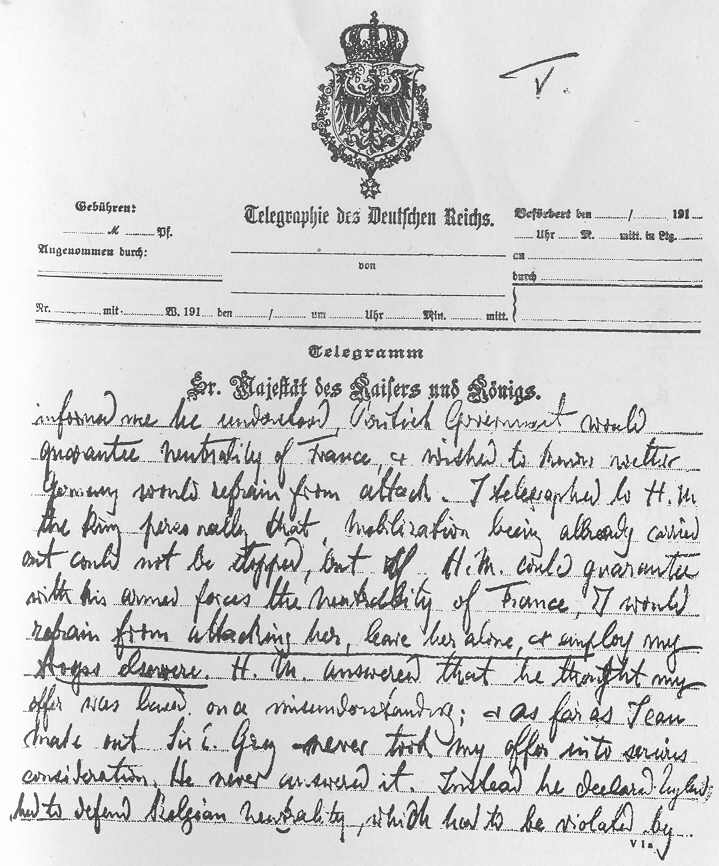 V.
Gebühren:
M Pf.
Angenommen durch:
Telegraphie des Deutschen Reichs.
von
Befördert den / 191
Uhr M. mitt. in Ltg.
an
durch
Nr. mit W. 191 den / um Uhr Min. mitt.
Telegramm
Sr. Majestät des Kaisers und Königs.
informed me he understood, British Government would
guarantee neutrality of France, & wished to know wether
Germany would refrain from attack. I telegraphed to H.M.
the King personally that, mobilization being already carried
out could not be stopped, but if H.M. could guarantee
with his armed forces the neutrality of France, I would
refrain from attacking her, leave her alone, & employ my
troops elsewere. H.M. answered that he thought my
offer was based on a misunderstanding; & as far as I can
make out Sir E. Grey never took my offer into serious
consideration. He never answered it. Instead he declared England
had to defend Belgian neutrality, which had to be violated by
V 1a